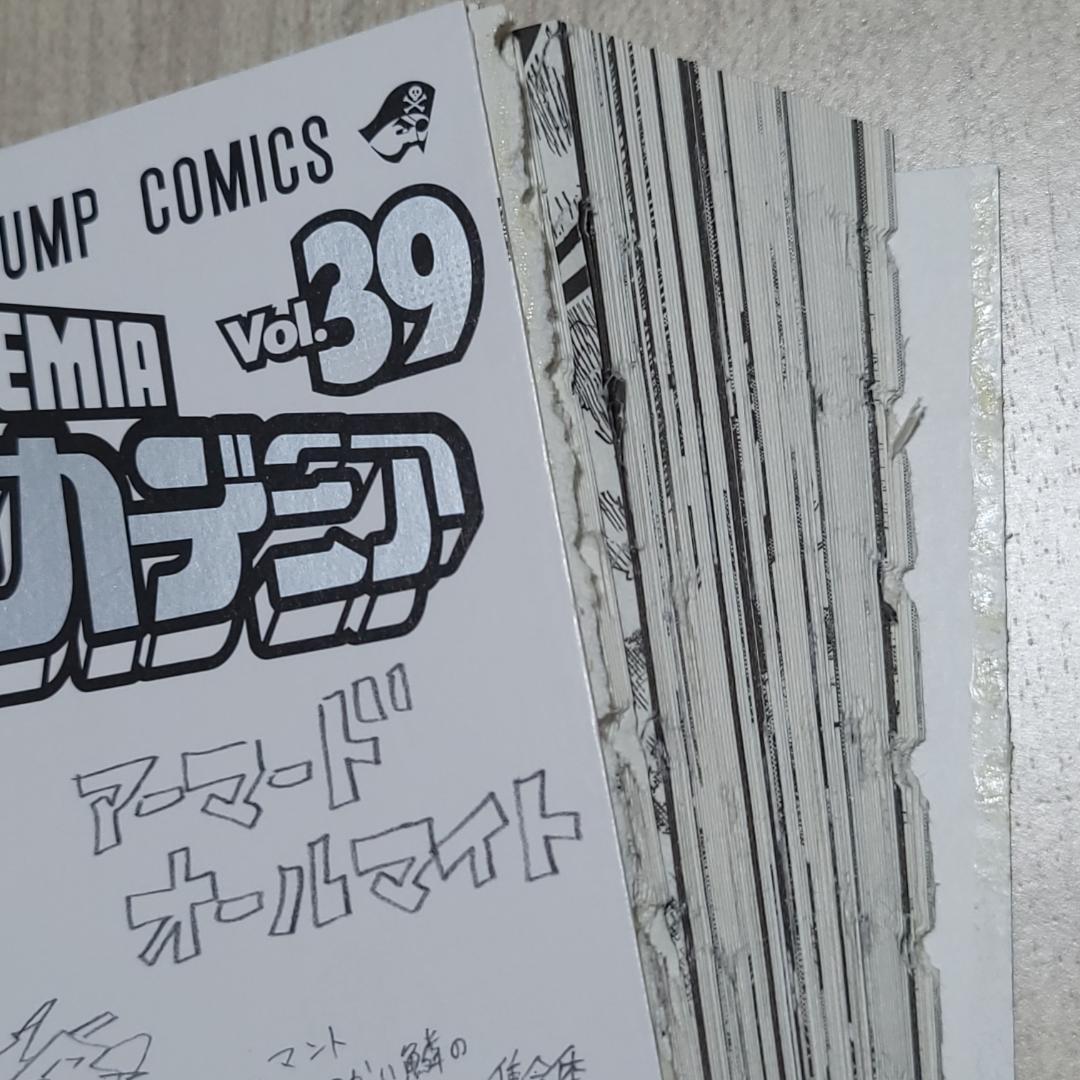 UMP COMICS
Vol.39
EMIA
カデミア
アーマード
オールマイト
マント
鱗の
集合体